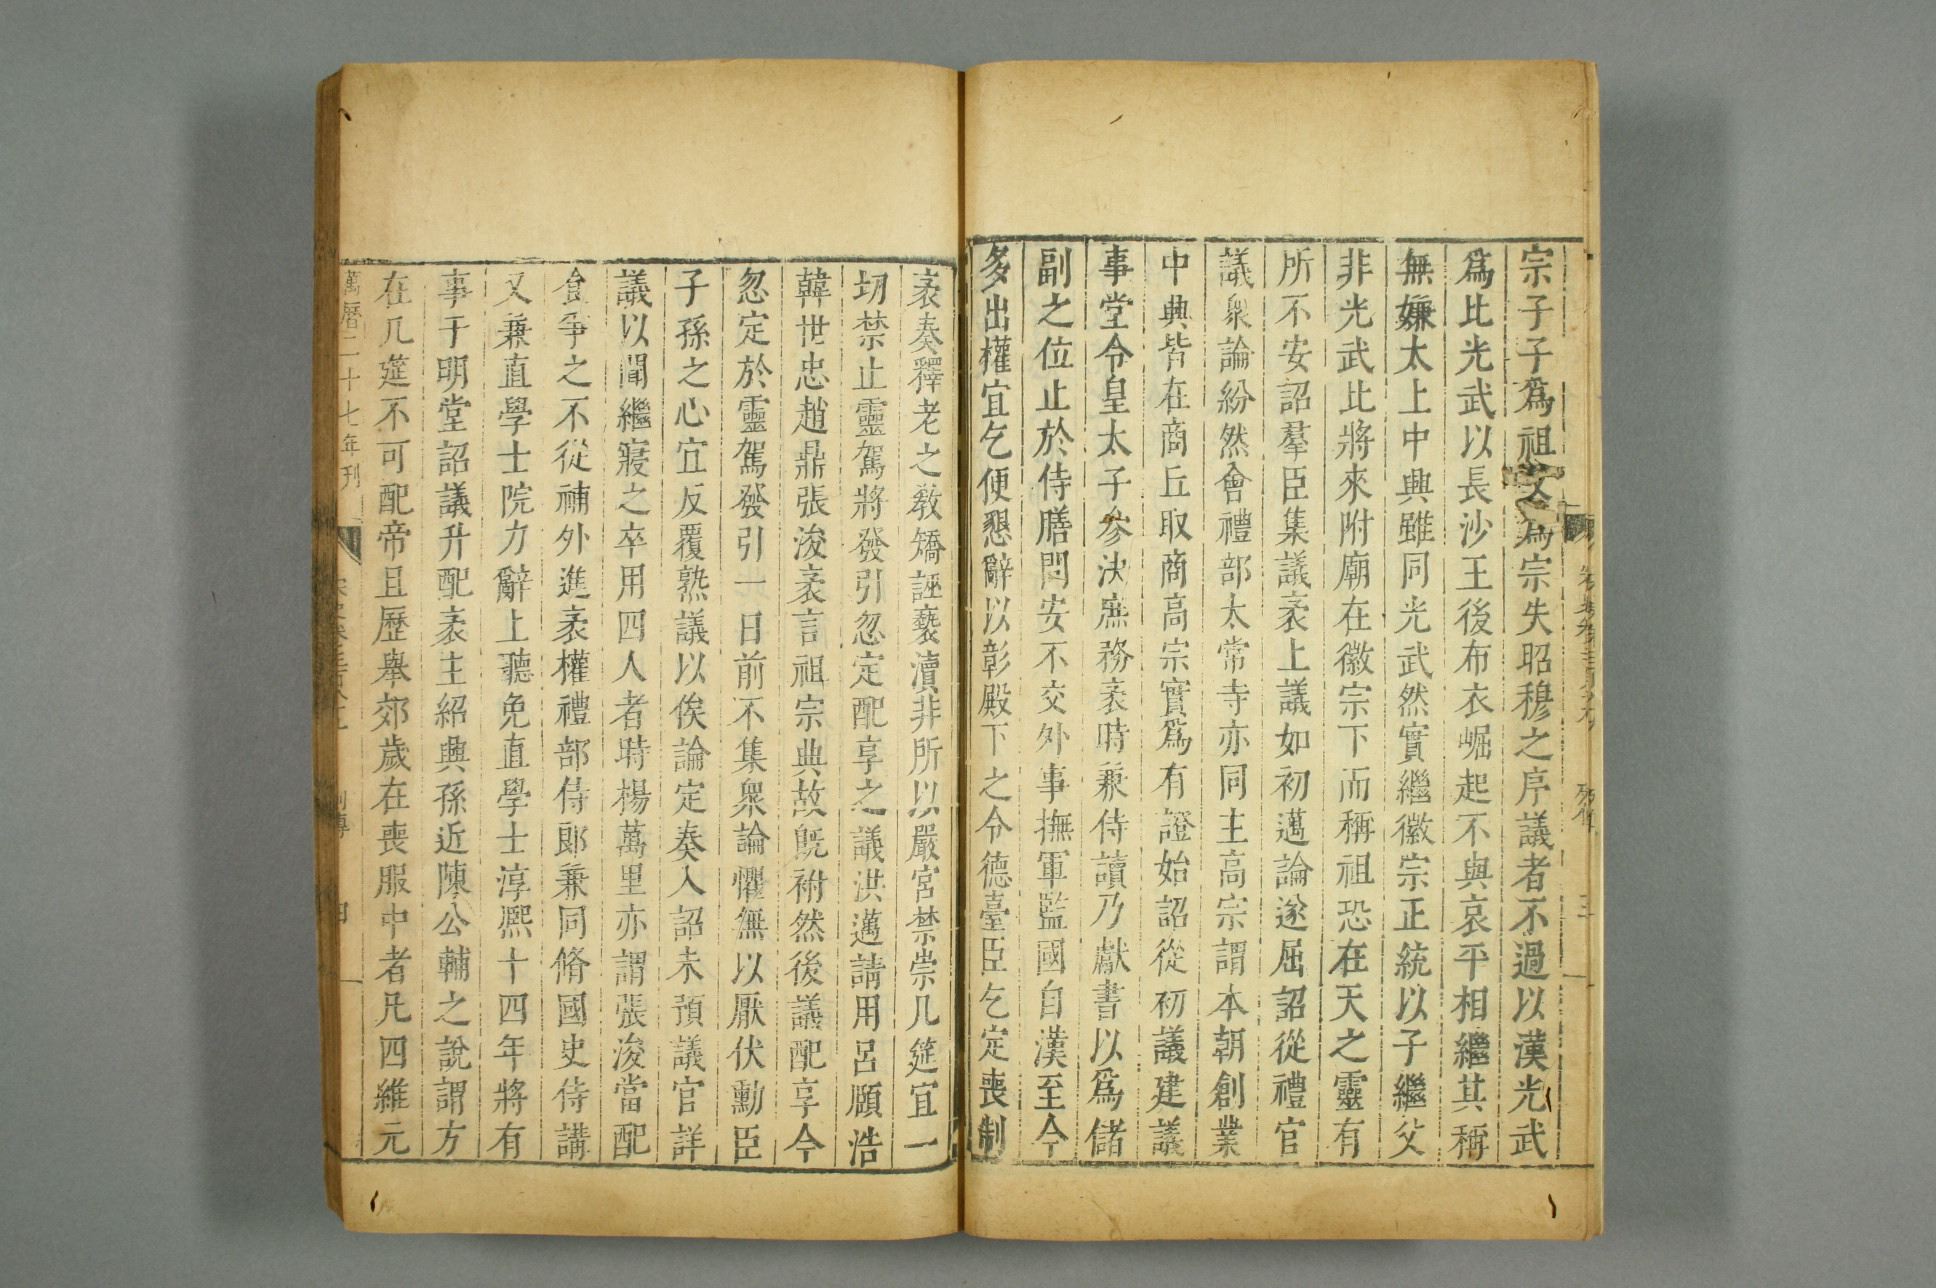 宗子子爲祖父爲宗失昭穆之序議者不過以漢光武
爲比光武以長沙王後布衣崛起不與哀平相繼其稱
無嫌太上中興雖同光武然實繼徽宗正統以子繼父
非光武比將來附廟在徽宗下而稱祖恐在天之靈有
所不安詔羣臣集議袤上議如初邁論遂屈詔從禮官
議衆論紛然會禮部太常寺亦同主高宗謂本朝創業
中興皆在商丘取商高宗實爲有證始詔從初議建議
事堂令皇太子參決庶務袤時兼侍讀乃獻書以爲儲
副之位止於侍膳問安不交外事撫軍監國自漢至今
多出權宜乞便懇辭以彰殿下之令德臺臣乞定喪制
袤奏釋老之教矯誣褻瀆非所以嚴宮禁崇几筵宜一
切禁止靈駕將發引忽定配享之議洪邁請用呂頤浩
韓世忠趙鼎張浚袤言祖宗典故旣祔然後議配享今
忽定於靈駕發引一日前不集衆論懼無以厭伏勳臣
子孫之心宜反覆熟議以俟論定奏入詔未預議官詳
議以聞繼寢之卒用四人者時楊萬里亦謂張浚當配
食爭之不從補外進袤權禮部侍郎兼同脩國史侍講
又兼直學士院力辭上聽免直學士淳熙十四年將有
事于明堂詔議升配袤主紹興孫近陳公輔之說謂方
在几筵不可配帝且歷舉郊歲在喪服中者凡四維元
萬曆二十七年刊
列傳
四